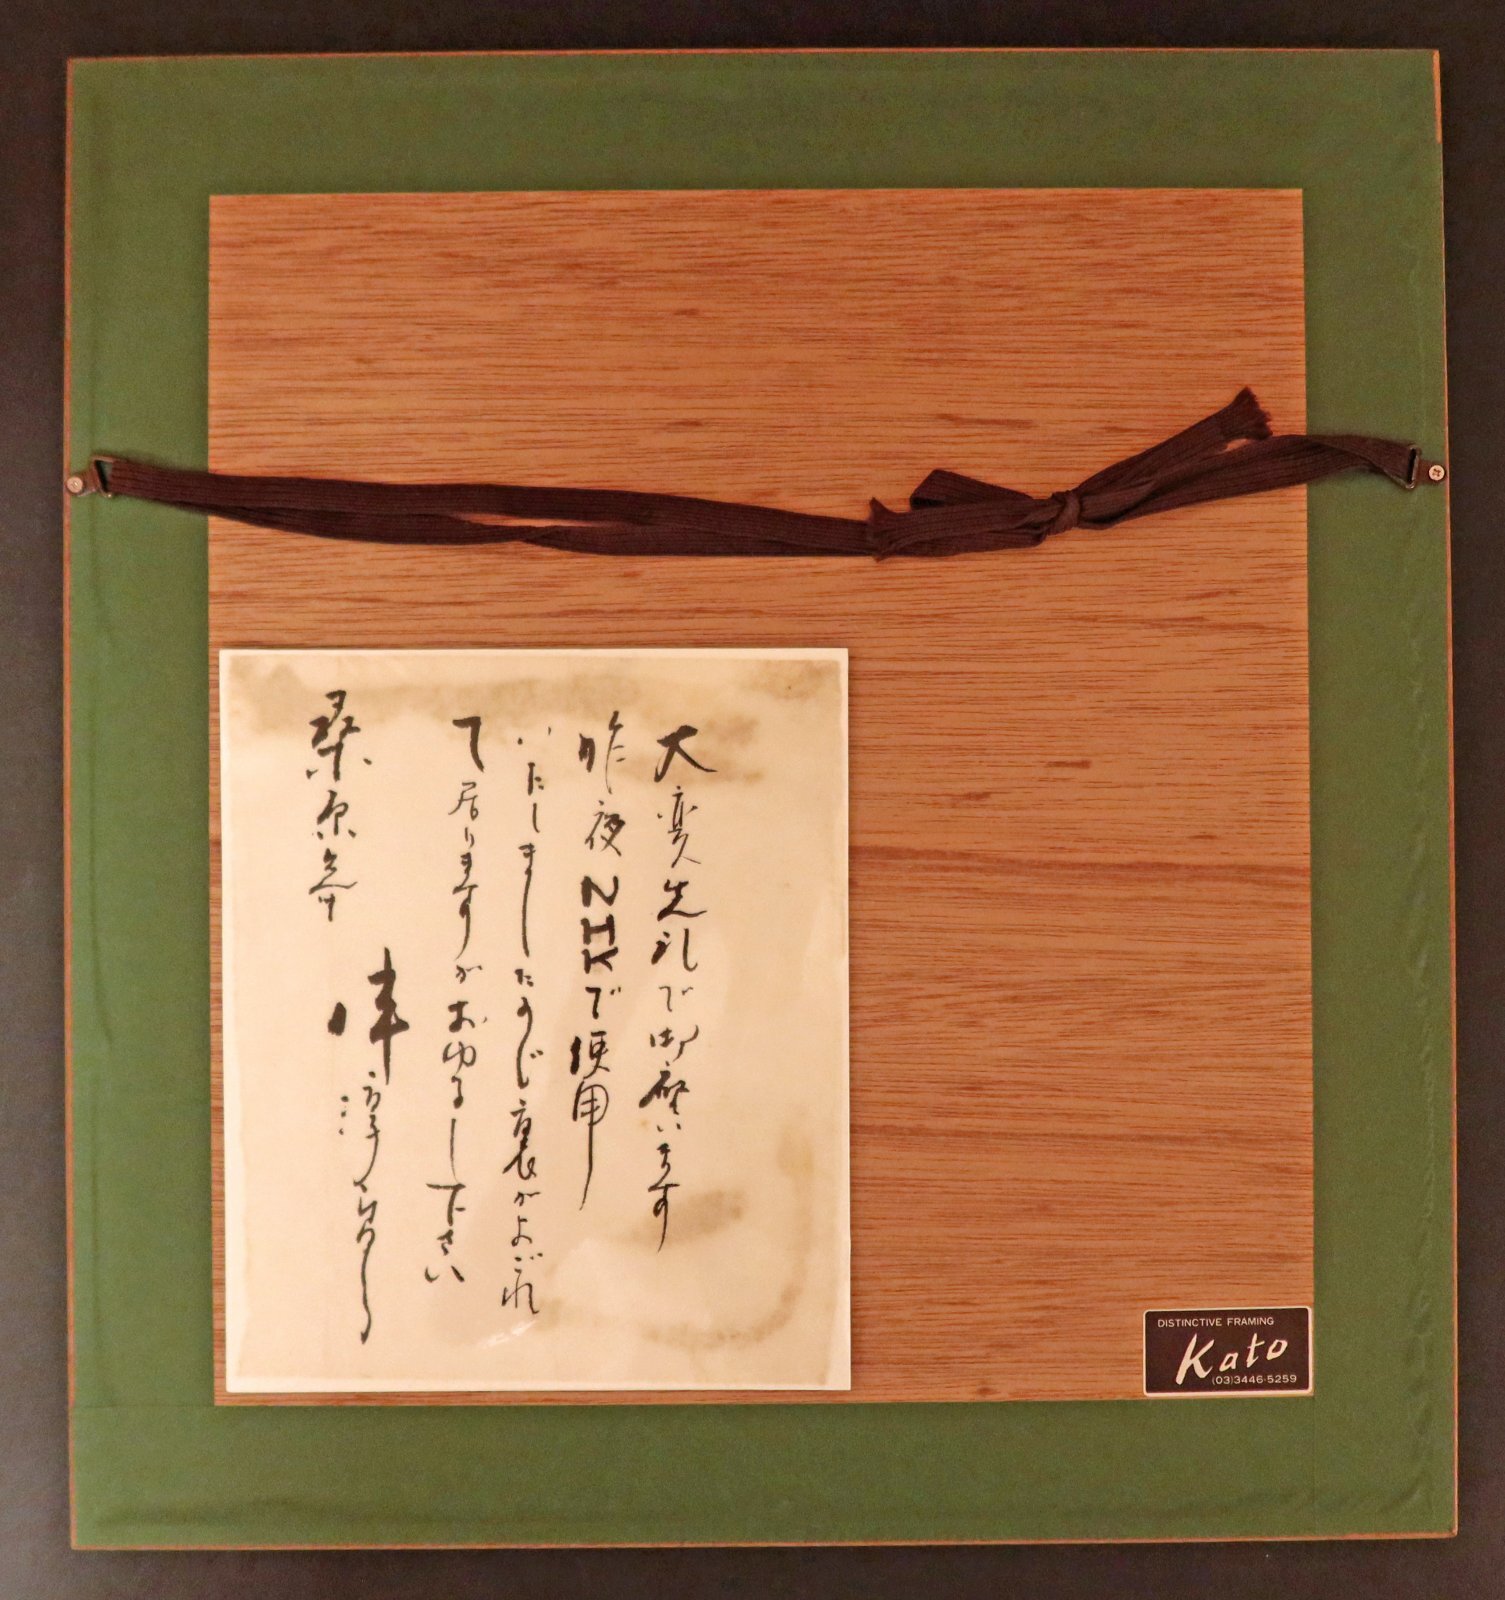 大変失礼で御座います
昨夜NHKで使用
いたしましたので裏がよごれ
て居りますがおゆるし下さい
桑原
DISTINCTIVE FRAMING
Kato
(03)3446-5259